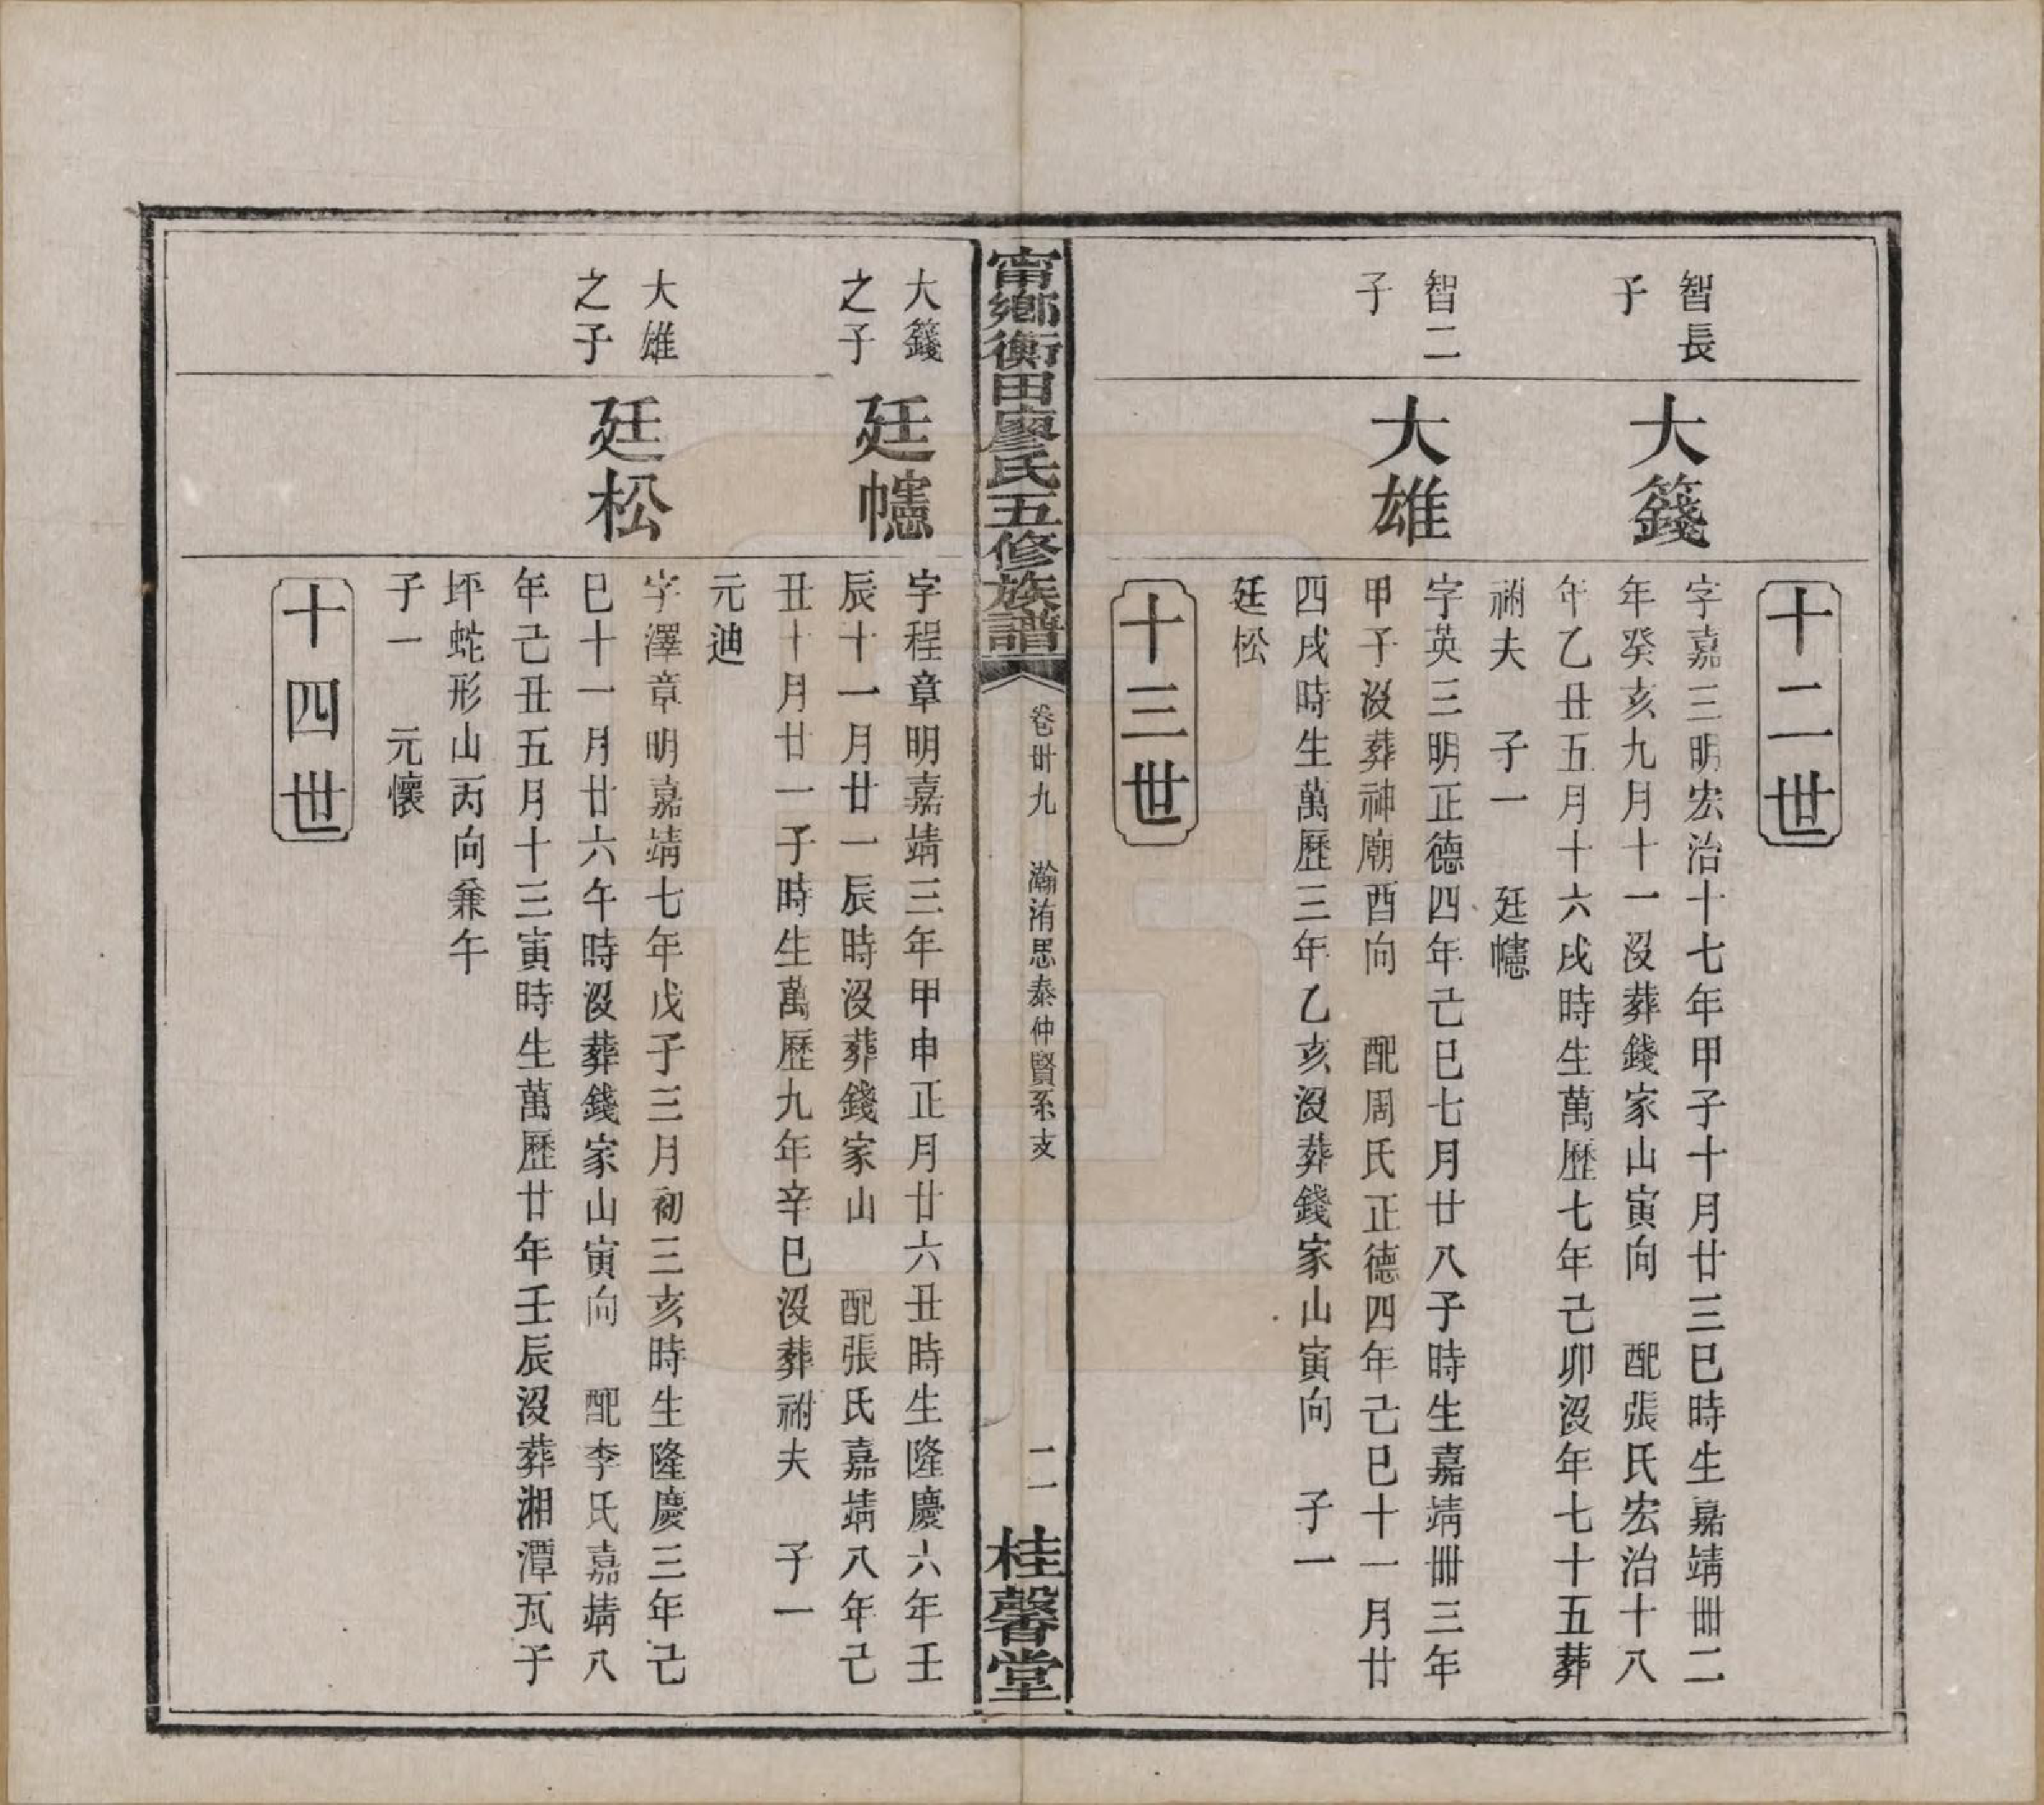 十二世
智長
子
大籛
字嘉三明宏治十七年甲子十月廿三巳時生嘉靖卌二
年癸亥九月十一沒葬錢家山寅向　配張氏宏治十八
年乙丑五月十六戌時生萬歷七年己卯沒年七十五葬
祔夫　子一　廷幰
智二
子
大雄
字英三明正德四年己巳七月廿八子時生嘉靖卌三年
甲子沒葬神廟酉向　配周氏正德四年己巳十一月廿
四戌時生萬歷三年乙亥沒葬錢家山寅向　子一
廷松
十三世
甯鄉衡田廖氏五修族譜
卷卅九　瀚洧思泰仲賢系支
二一
桂馨堂
大籛
之子
廷幰
字程章明嘉靖三年甲申正月廿六丑時生隆慶六年壬
辰十一月廿一辰時沒葬錢家山　配張氏嘉靖八年己
丑十月廿一子時生萬歷九年辛巳沒葬祔夫　子一
元迪
大雄
之子
廷松
字澤章明嘉靖七年戊子三月初三亥時生隆慶三年己
巳十一月廿六午時沒葬錢家山寅向　配李氏嘉靖八
年己丑五月十三寅時生萬歷廿年壬辰沒葬湘潭瓦子
坪蛇形山丙向兼午
子一　元懷
十四世